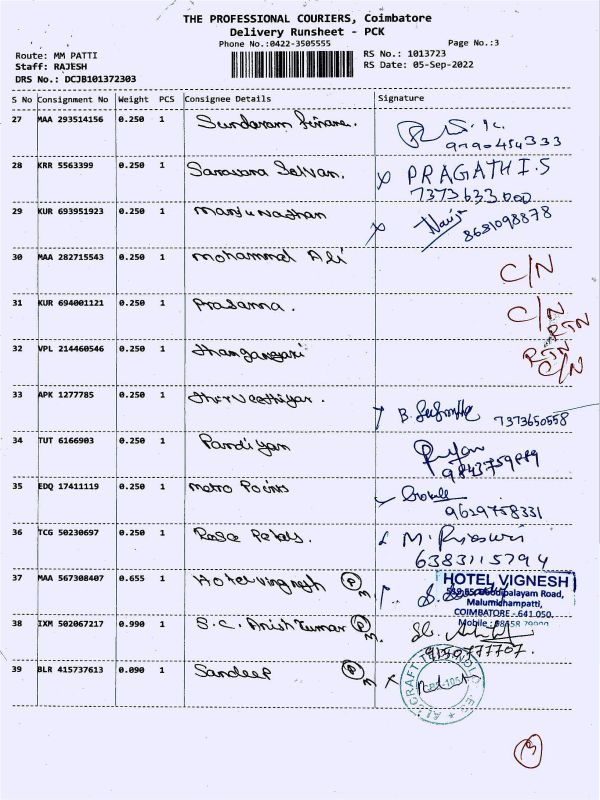 THE PROFESSIONAL COURIERS, Coimbatore
Delivery Runsheet - PCK
Phone No.:0422-3505555
Page No.:3
Route: MM PATTI
RS No.: 1013723
Staff: RAJESH
RS Date: 05-Sep-2022
DRS No.: DCJB101372303
S No Consignment No Weight PCS Consignee Details Signature
27 MAA 293514156 0.250 1 Sundaram finane.
9790454333
28 KRR 5563399 0.250 1 Saravana Selvan. x PRAGATHI.S
7373633000
29 KUR 693951923 0.250 1 Manjunathan x
8681098878
30 MAA 282715543 0.250 1 Mohammed Ali C/N
31 KUR 694001121 0.250 1 Prasanna. C/N
RTN
32 VPL 214460546 0.250 1 RTN
C/N
33 APK 1277785 0.250 1 7373650558
34 TUT 6166903 0.250 1 Pandiyan
35 EDQ 17411119 0.250 1 Metro Points
9629758331
36 TCG 50230697 0.250 1 Rose Petals.
6383115794
37 MAA 567308407 0.655 1 Hotel vingnesh P M
HOTEL VIGNESH
Malumichampatti,
COIMBATORE - 641 050.
38 IXM 502067217 0.990 1 S.C. Anish Kumar P M.
39 BLR 415737613 0.090 1 Sandeep P M x